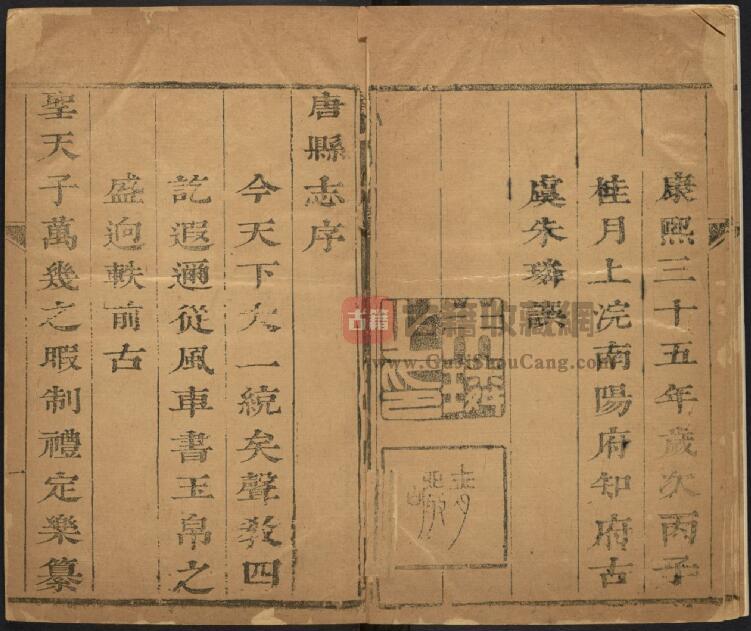 康熙三十五年歲次丙子
桂月上浣南陽府知府古
虞朱璘譔
唐縣志序
今天下大一統矣聲教四
訖遐邇從風車書玉帛之
盛迥軼前古
聖天子萬幾之暇制禮定樂纂
古籍
古籍收藏網
www.GujiShouCang.com